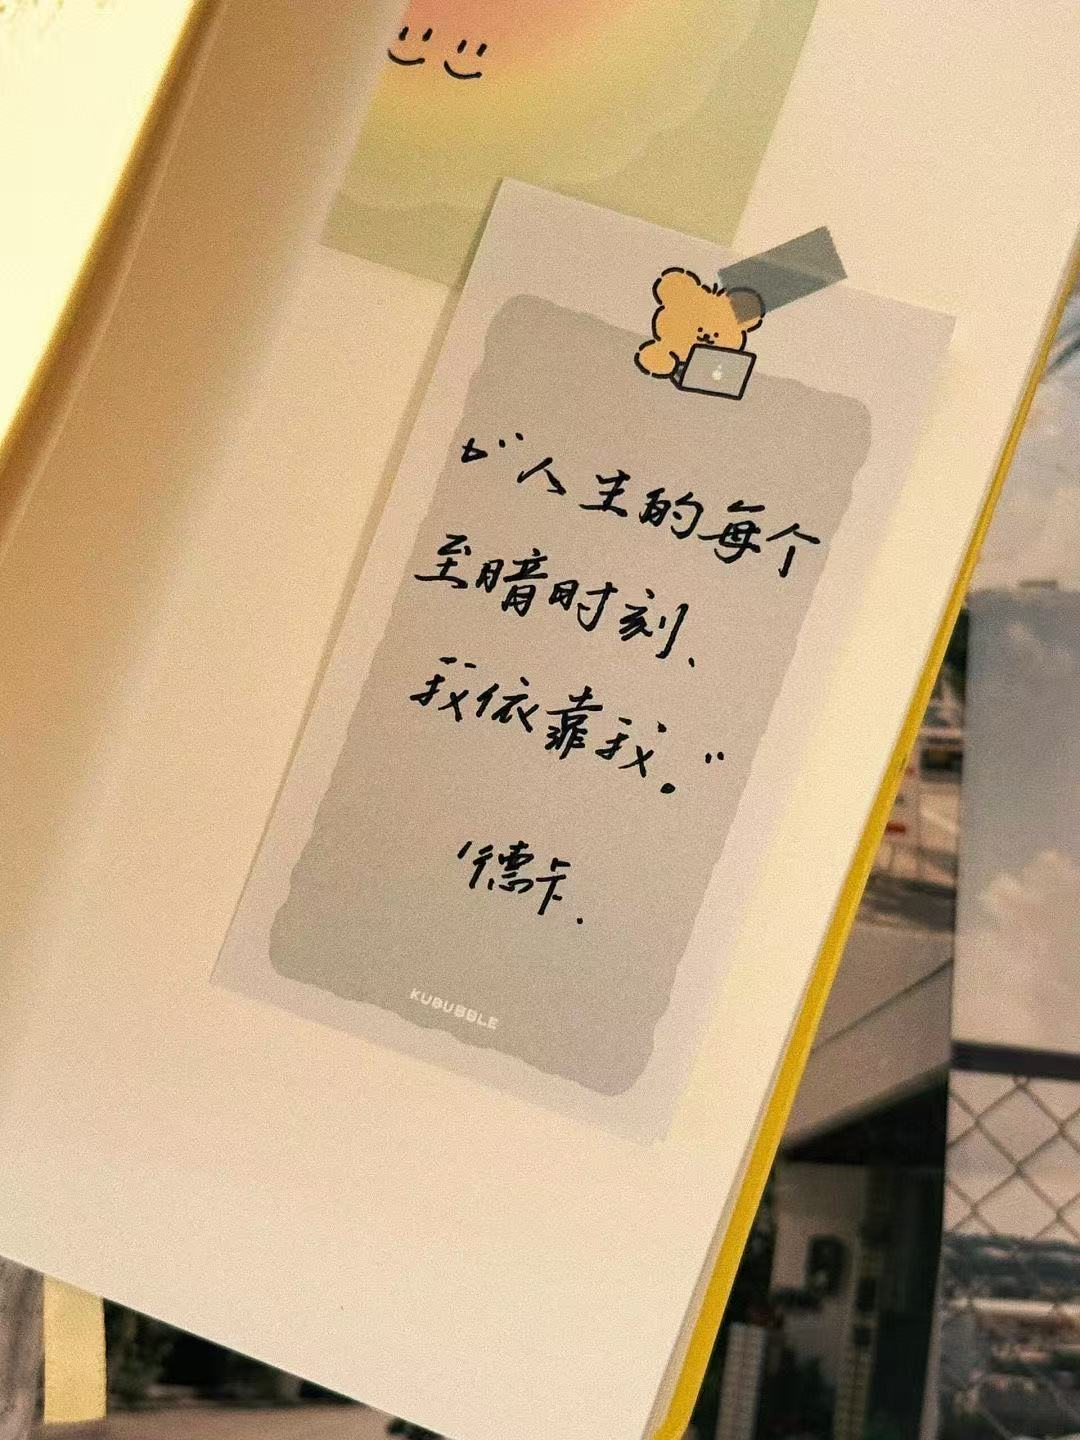 “人生的每个
至暗时刻、
我依靠我。”
德卡.
KUBUBBLE